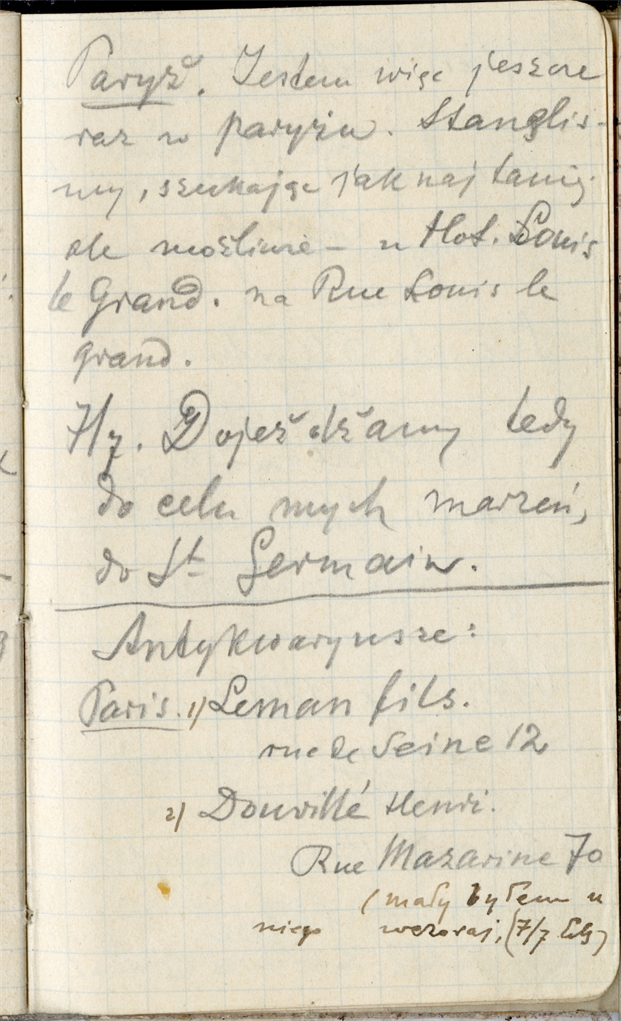 Paryż. Jestem więc jeszcze
raz w paryżu. Stanęliś-
my, szukając jak naj taniej
ale możliwie – w Hot. Louis
le Grand. na Rue Louis le
grand.
7/7. Dojeżdżamy tedy
do celu mych marzeń,
do St Germain.
Antykwaryusze:
Paris. 1) Leman fils.
rue de Seine 12
2) Douvillé Henri.
Rue Mazarine 70
(mały byłem u
niego wczoraj, (7/7